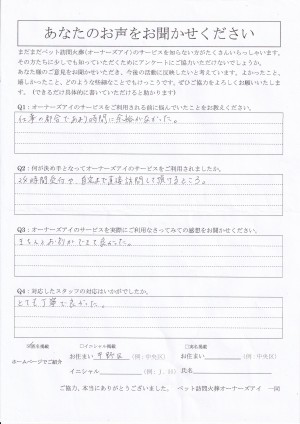 あなたのお声をお聞かせください
まだまだペット訪問火葬(オーナーズアイ)のサービスを知らない方がたくさんいらっしゃいます。
その方たちに少しでも知っていただくためにアンケートにご協力いただけないでしょうか。
あなた様のご意見をお聞かせいただき、今後の活動に反映したいと考えています。よかったこと、
嬉しかったこと、どのような些細なことでもけっこうです。ぜひご協力をよろしくお願いいたしま
す。(できるだけ具体的に書いていただけると助かります)
Q1:オーナーズアイのサービスをご利用される前に悩んでいたことをお教えください。
仕事の都合であまり時間に余裕がなかった。
Q2:何が決め手となってオーナーズアイのサービスをご利用されましたか。
24時間受付や、自宅まで直接訪問して頂けるところ。
Q3:オーナーズアイのサービスを実際にご利用なさってみての感想をお聞かせください。
きちんとお別れができて良かった。
Q4:対応したスタッフの対応はいかがでしたか。
とても丁寧で良かった。
匿名掲載
□イニシャル掲載
□実名掲載
ホームページでご紹介
お住まい 平野区 (例:中央区)
お住まい (例:中央区)
イニシャル (例:J.H)
氏名
ご協力、本当にありがとうございました。 ペット訪問火葬オーナーズアイ 一同